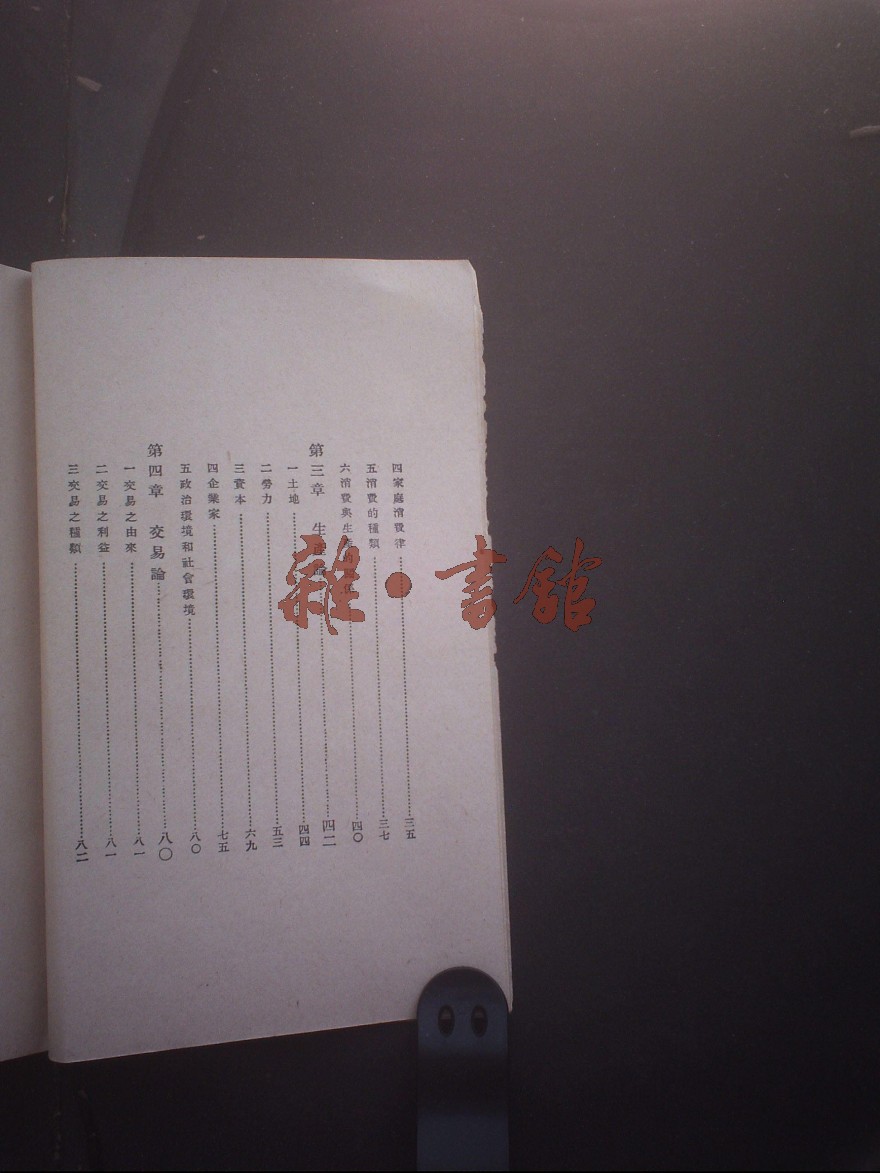 四家庭消費律……三五
五消費的種類……三七
六消費與生……四〇
第三章 生……四二
一土地……四四
二勞力……五三
三資本……六九
四企業家……七五
五政治環境和社會環境……八〇
第四章 交易論……八〇
一交易之由來……八一
二交易之利益……八一
三交易之種類……八二
雜·書館